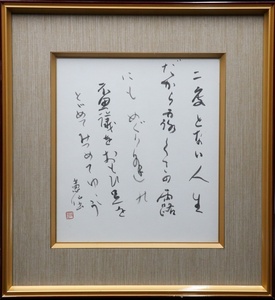 二度とない人生
だから一つゆの露
にもめぐりあいの
不思議をおもひ足を
とどめてみつめてゆこう